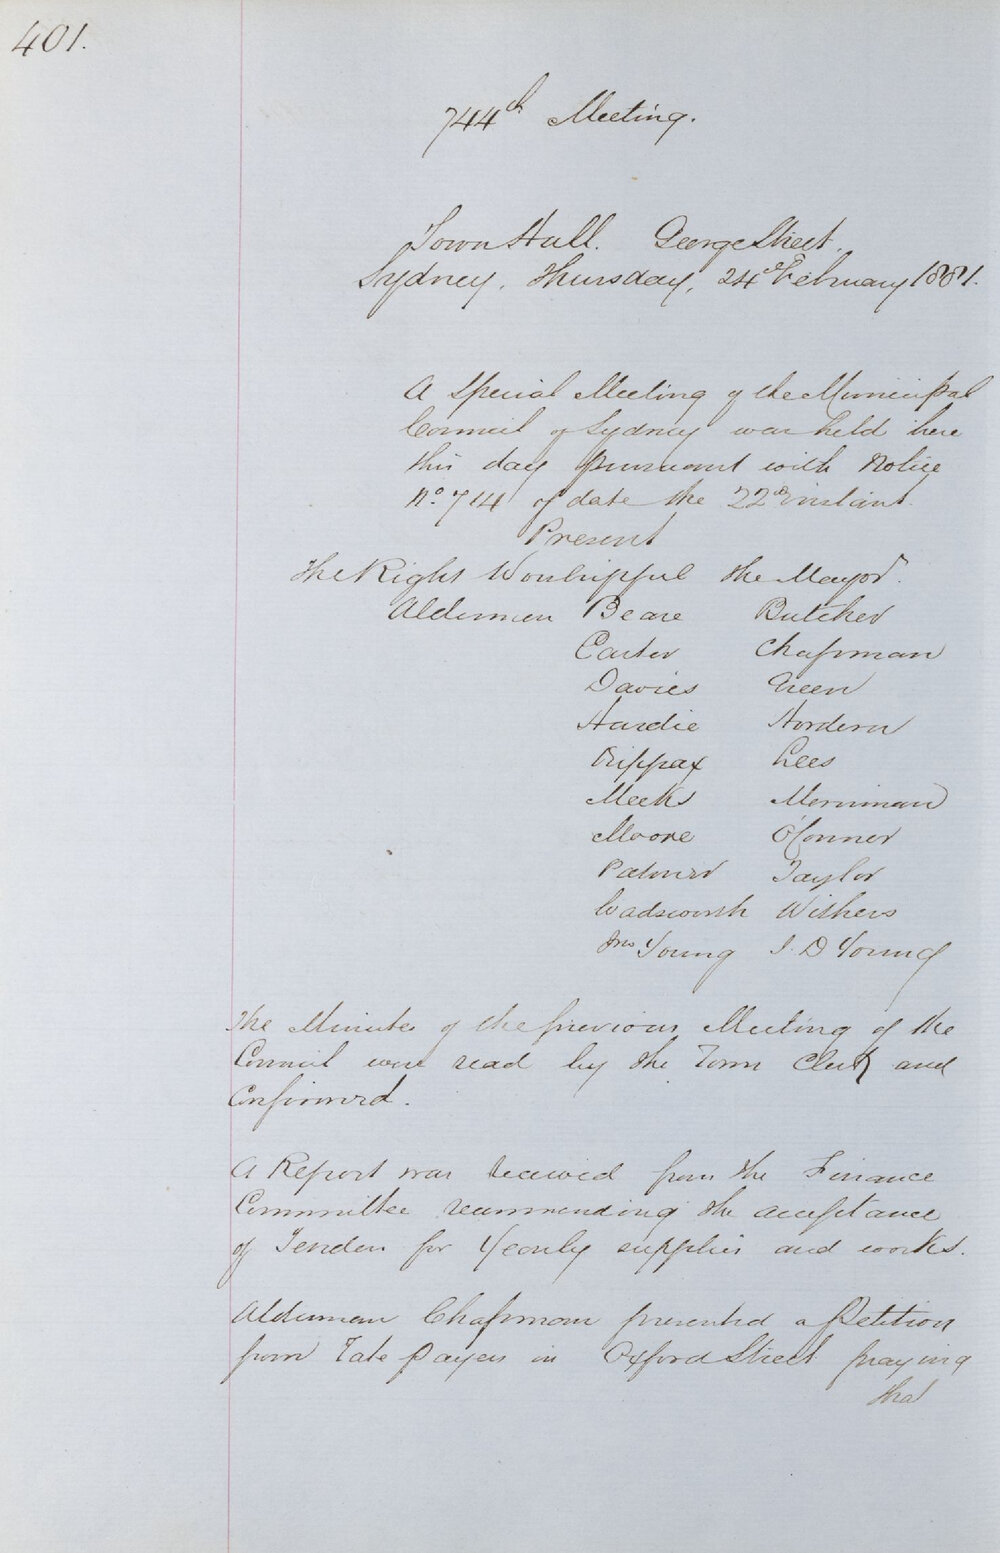 401.
744th Meeting.
Town Hall. George Street.
Sydney, Thursday, 24th February 1881.
A Special Meeting of the Municipal
Council of Sydney was held here
this day pursuant with Notice
No. 714 of date the 22nd instant.
Present
The Right Worshipful the Mayor.
Aldermen Beare Butcher
Carter Chapman
Davies Green
Hardie Hordern
Kippax Lees
Meeks Merriman
Moore O'Connor
Palmer Taylor
Wadsworth Withers
Jno Young J. D Young
The Minutes of the previous Meeting of the
Council were read by the Town Clerk and
Confirmed.
A Report was received from the Finance
Committee recommending the acceptance
of Tenders for Yearly supplies and works.
Alderman Chapman presented a Petition
from Rate payers in Oxford Street praying
that